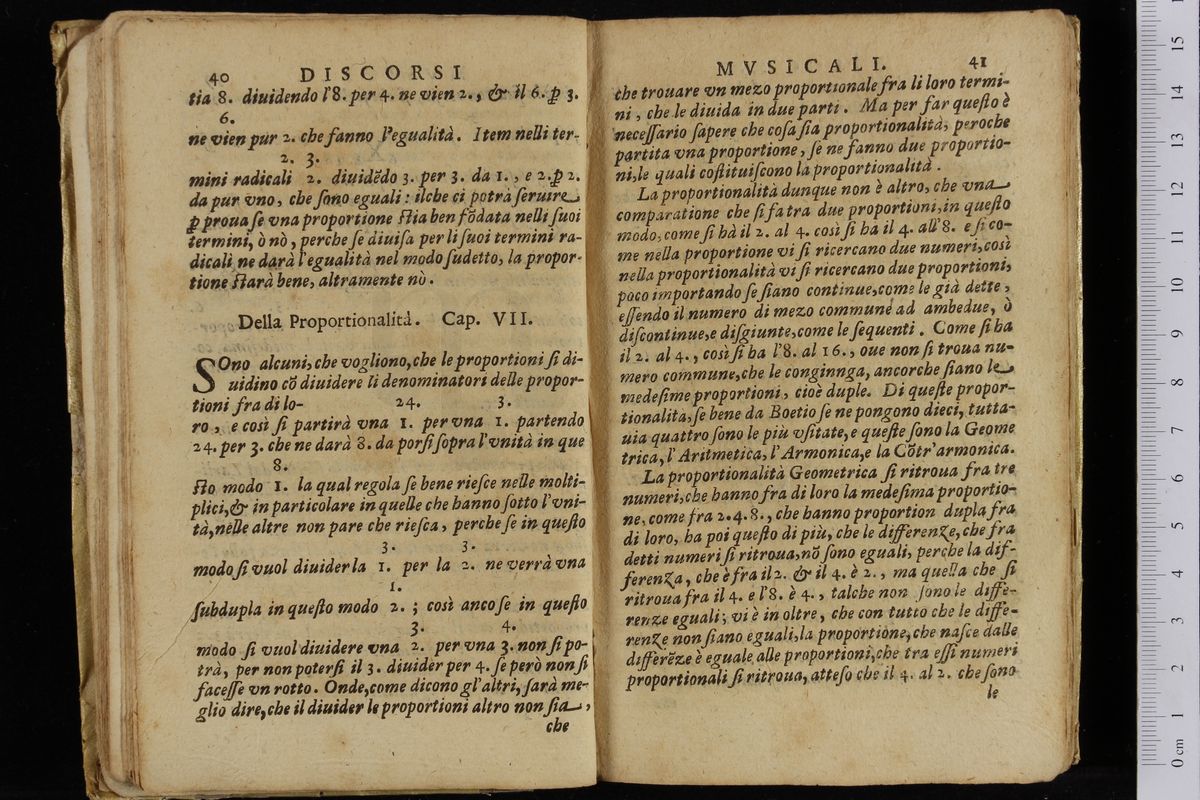 40 DISCORSI
tia 8. diuidendo l'8. per 4. ne vien 2., & il 6. ꝑ 3.
6.
ne vien pur 2. che fanno l'egualità. Item nelli ter-
2. 3.
mini radicali 2. diuidēdo 3. per 3. da 1., e 2. ꝑ 2.
da pur vno, che sono eguali: ilche ci potrà seruire
ꝑ proua se vna proportione stia ben fōdata nelli suoi
termini, ò nò, perche se diuisa per li suoi termini ra-
dicali ne darà l'egualità nel modo sudetto, la propor-
tione starà bene, altramente nò.
Della Proportionalità. Cap. VII.
SOno alcuni, che vogliono, che le proportioni si di-
uidino cō diuidere li denominatori delle propor-
tioni fra di lo- 24. 3.
ro, e così si partirà vna 1. per vna 1. partendo
24. per 3. che ne darà 8. da porsi sopra l'vnità in que
8.
sto modo 1. la qual regola se bene riesce nelle molti-
plici, & in particolare in quelle che hanno sotto l'vni-
tà, nelle altre non pare che riesca, perche se in questo
3. 3.
modo si vuol diuider la 1. per la 2. ne verrà vna
1.
subdupla in questo modo 2.; così anco se in questo
3. 4.
modo si vuol diuidere vna 2. per vna 3. non si po-
trà, per non potersi il 3. diuider per 4. se però non si
facesse vn rotto. Onde, come dicono gl'altri, sarà me-
glio dire, che il diuider le proportioni altro non sia,
che
MVSICALI. 41
che trouare vn mezo proportionale fra li loro termi-
ni, che le diuida in due parti. Ma per far questo è
necessario sapere che cosa sia proportionalità, peroche
partita vna proportione, se ne fanno due proportio-
ni, le quali costituiscono la proportionalità.
La proportionalità dunque non è altro, che vna
comparatione che si fa tra due proportioni, in questo
modo, come si hà il 2. al 4. così si ha il 4. all'8. e si co-
me nella proportione vi si ricercano due numeri, così
nella proportionalità vi si ricercano due proportioni,
poco importando se siano continue, come le già dette,
essendo il numero di mezo commune ad ambedue, ò
discontinue, e disgiunte, come le sequenti. Come si ha
il 2. al 4., così si ha l'8. al 16., oue non si troua nu-
mero commune, che le conginnga, ancorche siano le
medesime proportioni, cioè duple. Di queste propor-
tionalità, se bene da Boetio se ne pongono dieci, tutta-
uia quattro sono le più vsitate, e queste sono la Geome
trica, l'Aritmetica, l'Armonica, e la Cōtr'armonica.
La proportionalità Geometrica si ritroua fra tre
numeri, che hanno fra di loro la medesima proportio-
ne, come fra 2. 4. 8., che hanno proportion dupla fra
di loro, ha poi questo di più, che le differenze, che fra
detti numeri si ritroua, nō sono eguali, perche la dif-
ferenza, che è fra il 2. & il 4. è 2., ma quella che si
ritroua fra il 4. e l'8. è 4., talche non sono le diffe-
renze eguali; vi è in oltre, che con tutto che le diffe-
renze non siano eguali, la proportione, che nasce dalle
differēze è eguale alle proportioni, che tra essi numeri
proportionali si ritroua, atteso che il 4. al 2. che sono
le
0 cm 1 2 3 4 5 6 7 8 9 10 11 12 13 14 15